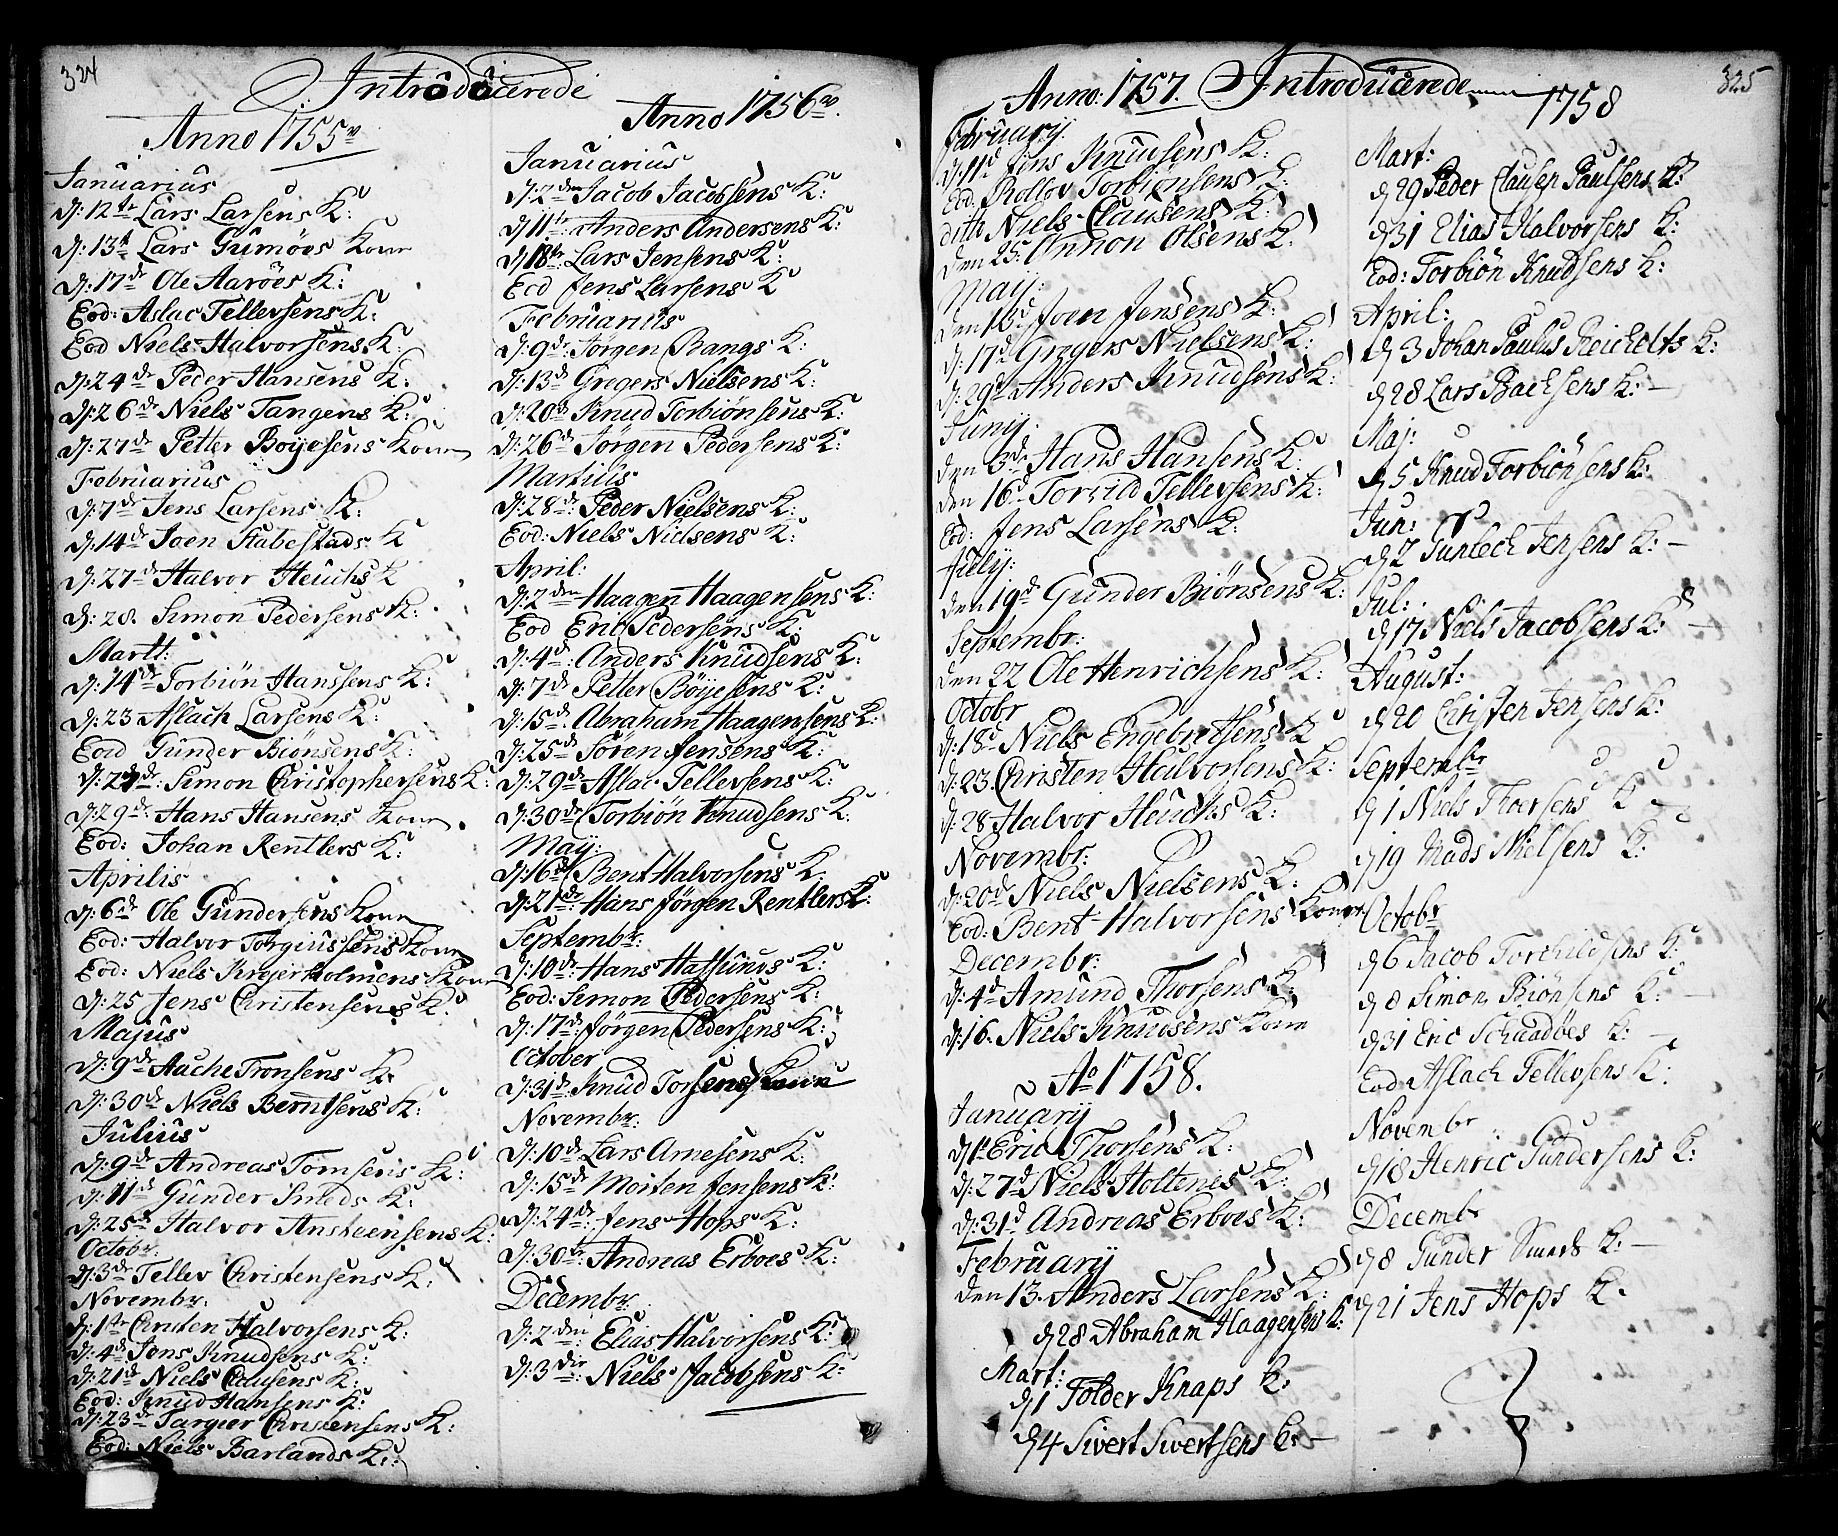 324
Introducerede
Anno 1755
Januarius
d: 12te Lars Larsens K:
d: 13t Lars Gumöes Konn
d: 17de Ole Aaröes K:
Eod: Aslac Tellevsens K:
Eod Niels Halvorsens K:
d: 24de Peder Hansens K:
d: 26de Niels Tangens K:
d: 27de Petter Boyesens Konn
Februarius
d: 7de Jens Larsens K:
d: 14de Joen Stabestads K
d: 27de Halvor Heuchs K
d: 28. Simon Pedersens K:
Martt:
d: 14de Torbiön Hanssens K:
d: 23 Aslach Larsens K:
Eod Gunder Biönsens K:
d: 24de Simon Christophersens K:
d: 29de Hans Hansens Konn
Eod: Johan Rentlers K:
Aprilis
d: 6de Ole Gundersens Konn
Eod: Halvor Torgiussens Konn
Eod: Niels Krejerholmens Konn
d: 25 Jens Christensens K:
Majus
d: 9de Aache Tronsens K:
d: 30de Niels Berntsens K:
Julius
d: 9de Andreas Tomsens K:
d: 11d Gunder Smeds K:
d: 25de Halvor Ansteensens K:
Octobr.
d: 3de Tellev Christensens K:
Novembr:
d: 1te Christen Halvorsens K:
d: 4de Jens Knudsens K:
d: 21de Niels Clausens K:
Eod: Knud Hansens K:
d: 23de Targier Christensens K:
Eod: Niels Barlands K:
Anno 1756
Januarius
d: 2den Jacob Jacobsens K:
d: 11te Anders Andersens K:
d: 18te Lars Jensens K:
Eod Jens Larsens K
Februarius
d: 9de Jörgen Bangs K:
d: 13de Gregers Nielsens K:
d: 20de Knud Torbiönsens K:
d: 26de Jörgen Pedersens K:
Martius
d: 28de: Peder Nielsens K:
Eod: Niels Nielsens K:
April:
d: 2den Haagen Haagensens K:
Eod Eric Pedersens K:
d: 4de: Anders Knudsens K:
d: 7de Petter Böyesens K:
d: 15de. Abraham Haagensens K:
d: 25de Sören Jensens K:
d: 29de Aslac Tellevsens K:
d: 30de Torbiön Knudsens K:
May:
d: 16de Bent Halvorsens K:
d: 21de: Hans Jörgen Rentlers K:
Septembr:
d: 10de: Hans Hassunds K:
Eod: Simon Pedersens K:
d: 17de: Jörgen Pedersens K:
October
d: 31de Knud Torsens Konn
Novembr:
d: 10de Lars Arnesens K:
d: 15de Morten Jensens K:
d: 24de: Jens Hops K:
d: 30te: Andreas Erboes K:
Decembr:
d: 2den: Elias Halvorsens K:
d: 3die: Niels Jacobsens K:
Anno: 1757. Introducerede
325
Februarij:
d: 11d Jens Knudsens K:
Eod. Rollov Torbiönsens K:
dito Niels Clausens K:
den 25. Onnon Olsens K:
Maij:
den 16d Joen Jensens K:
d: 17d Gregers Nielsens K:
d: 29d Anders Knudsens K:
Junij:
den 3de Hans Hansens K:
den 16d Torkild Tellevsens K:
Eod: Jens Larsens K:
July:
den 19de Gunder Biönsens K:
Septembr:
den 22 Ole Henrichsens K:
Octobr
d: 18d Niels Engebretsens K
d: 23. Christen Halvorsens K:
d: 28 Halvor Heuchs K:
Novembr:
d: 20d Niels Nielsens K:
Eod: Bent Halvorsens Konn
Decembr:
d: 4d Amund Thorsens K:
d: 16. Niels Knudsens Konn
Ao 1758.
Januarij
d 1t Eric Thorsens K:
d: 27d Niels Holtenes K:
d: 31d Andreas Erboes K:
Februarij
den 13. Anders Larsens K:
d 28 Abraham Haagensens K:
Mart:
d 1 Tolder Knaps K:
d 4 Sivert Sivertsens K:
1758
Mart:
d 29 Peder Clausen Paulsens K:
d 31 Elias Halvorsens K:
Eod: Torbiön Knudsens K:
April:
d 3 Johan Paulus Reicheltts K:
d 28 Lars Bachsens K:
Maj:
d 5 Knud Torbiönsens K:
Jun:
d 2 Gunlech Jensens K:
Jul:
d 17 Niels Jacobsens K:
August:
d 20 Christen Jensens K:
Septembr
d 1 Niels Thorsens K
d 19 Mads Nielsens K:
Octobr
d 6 Jacob Torchildsens K:
d 8 Simon Biönsens K:
d 31 Eric Schaadöes K:
Eod Aslach Tellevsens K:
Novembr
d 18 Henric Gundersens K:
Decembr
d 8 Gunder Smeds K:
d 21 Jens Hops K.